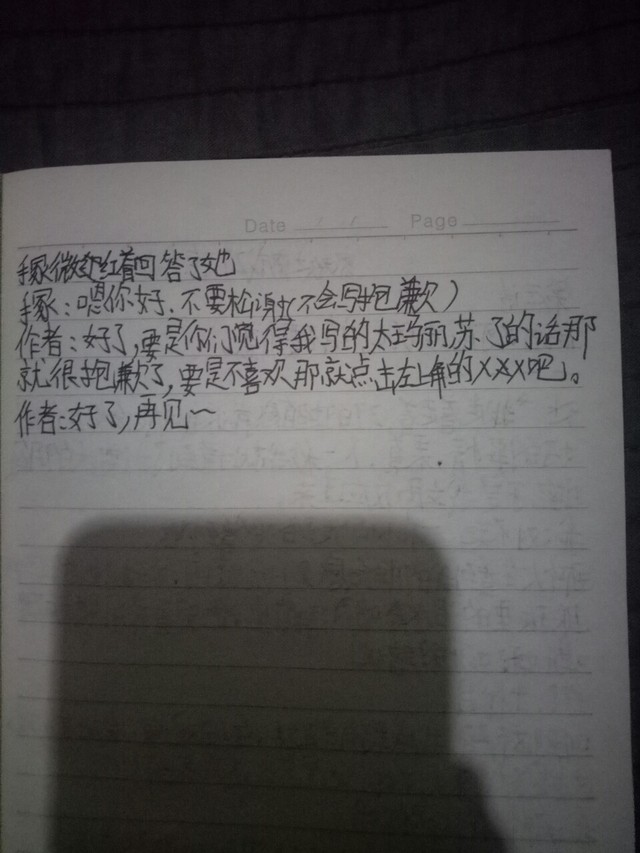 Date Page
手冢微红着回答了她
手冢:嗯你好.不要松谢(不会写抱歉)
作者:好了,要是你们觉得我写的太玛丽苏了的话那
就很抱歉了,要是不喜欢那就点击左上角的XXX吧。
作者:好了,再见~